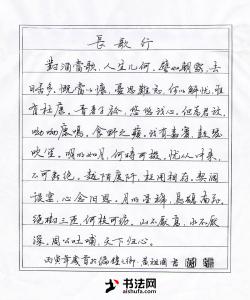 長歌行
對酒當歌，人生几何，譬如朝露，去
日苦多，慨當以慷，憂思難忘，何以解忧，唯
有杜康。青青子衿，悠悠我心。但為君故，
呦呦鹿鳴，食野之蘋，我有嘉賓，鼓瑟
吹笙。明明如月，何時可掇，忧從中來，
不可断绝。越陌度阡，枉用相存，契阔
谈宴，心念旧恩。月明星稀，烏鵲南飛，
绕樹三匝，何枝可依。山不厌高，水不厌
深，周公吐哺，天下归心。
丙寅年 之鄉
书法网
www.aishufa.com